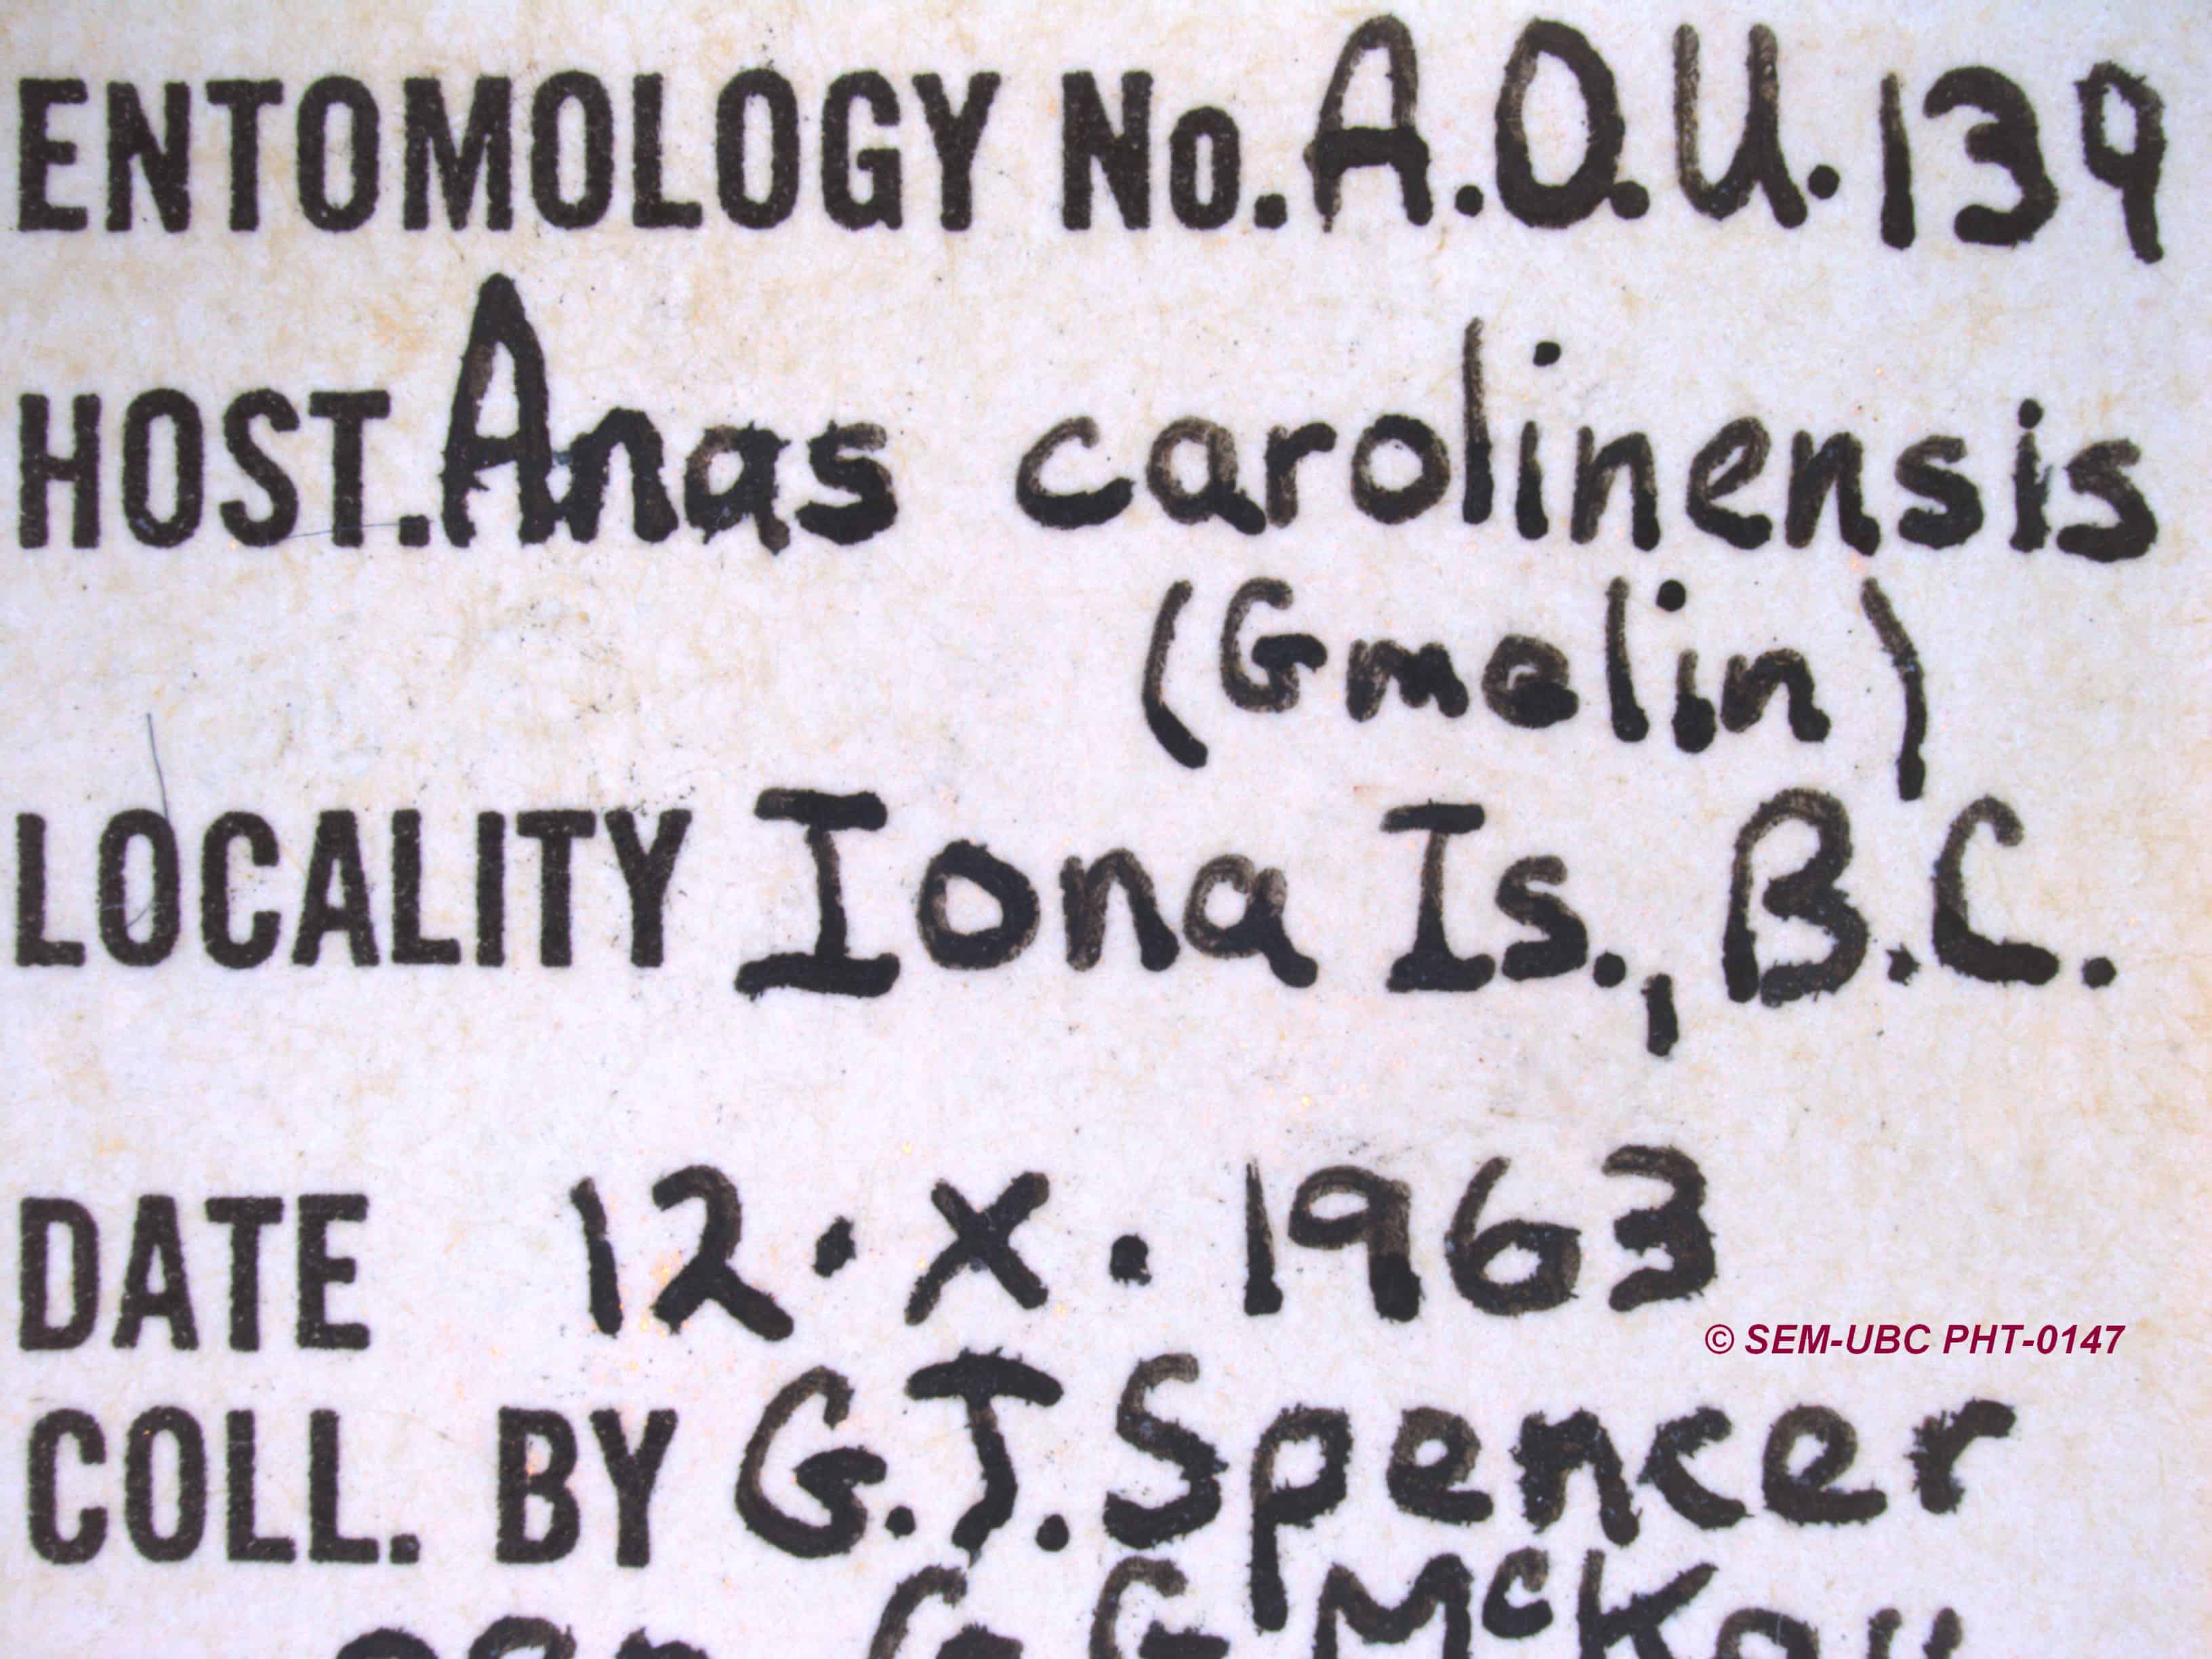 ENTOMOLOGY No. A.O.U. 139
HOST. Anas carolinensis
(Gmelin)
LOCALITY Iona Is., B.C.
DATE 12 · X · 1963
© SEM-UBC PHT-0147
COLL. BY G.J. Spencer